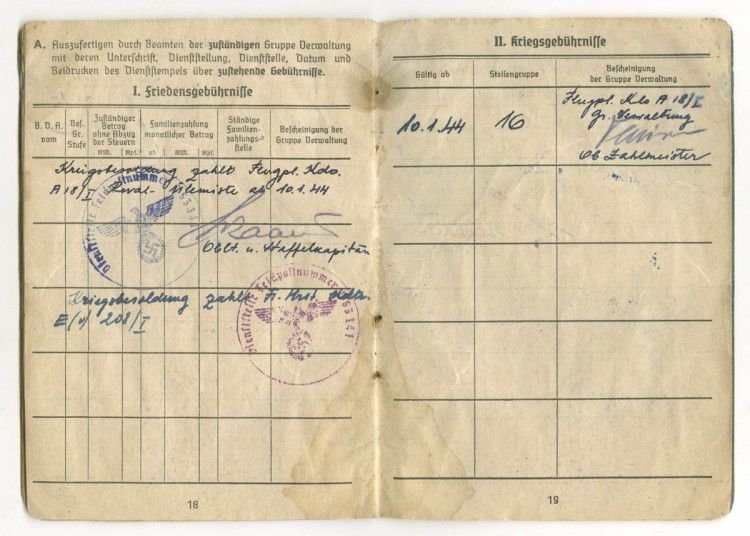 A. Auszufertigen durch Beamten der zuständigen Gruppe Verwaltung
mit deren Unterschrift, Dienststellung, Dienststelle, Datum und
Beidrucken des Dienststempels über zustehende Gebührnisse.
I. Friedensgebührnisse
B. D. A. vom
Bes. Gr. Stufe
Zuständiger Betrag ohne Abzug der Steuern
RM. Rpf.
Familienzahlung monatlicher Betrag
ab RM. Rpf.
Ständige Familienzahlungs-stelle
Bescheinigung der Gruppe Verwaltung
Kriegsbesoldung zahlt Flugpl. Kdo.
A 18/I Reval- ab 10.1.44
Dienststelle Feldpostnummer
Oblt. u. Staffelkapitän
Kriegsbesoldung zahlt Fl. Horst. Kdtr.
E (v) 208/I
Dienststelle Feldpostnummer
18
II. Kriegsgebührnisse
Gültig ab
Stellengruppe
Bescheinigung der Gruppe Verwaltung
10.1.44
16
Flugpl. Kdo A 18/I
Gr. Verwaltung
Ob Zahlmeister
19